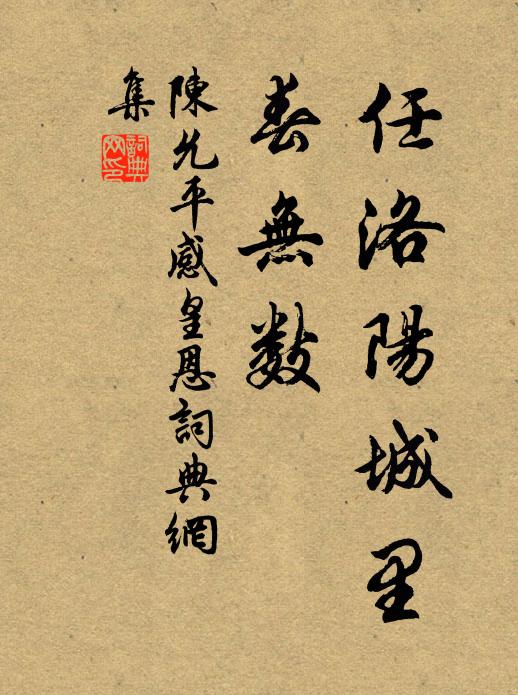 任洛陽城里
春無數
陳允平感皇恩詞典網
集
詞典
网印